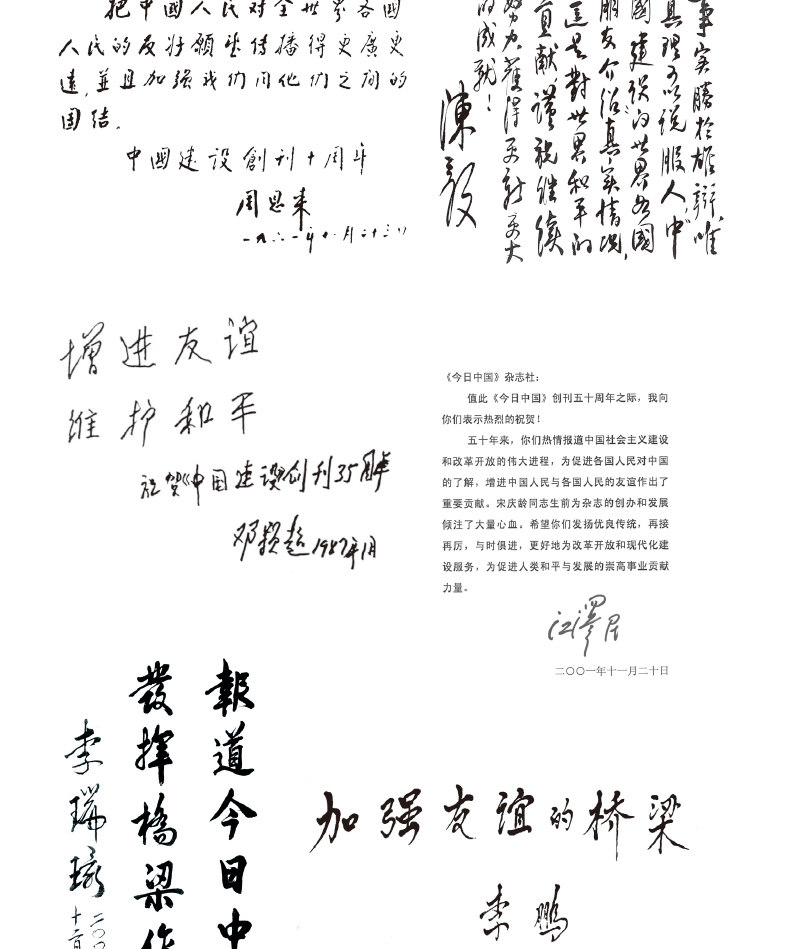 把中國人民对全世界各國
人民的友好願望传播得更廣更
遠，並且加强我们同他们之间的
团结。
中國建设創刊十周年
周恩来
一九六一年十一月二十三日
事实勝於雄辩，唯
真理可以说服人，中
國建设向世界各國
朋友介绍真实情况，
这是對世界和平的
贡献，谨祝继续
努力，獲得更新更大
的成就！
陳毅
增进友谊
维护和平
祝贺《中国建设》创刊35周年
邓颖超 1987年1月
《今日中国》杂志社：
值此《今日中国》创刊五十周年之际，我向
你们表示热烈的祝贺！
五十年来，你们热情报道中国社会主义建设
和改革开放的伟大进程，为促进各国人民对中国
的了解，增进中国人民与各国人民的友谊作出了
重要贡献。宋庆龄同志生前为杂志的创办和发展
倾注了大量心血。希望你们发扬优良传统，再接
再厉，与时俱进，更好地为改革开放和现代化建
设服务，为促进人类和平与发展的崇高事业贡献
力量。
江澤民
二〇〇一年十一月二十日
報道今日中
發揮橋梁作
李瑞環
加强友谊的桥梁
李鹏